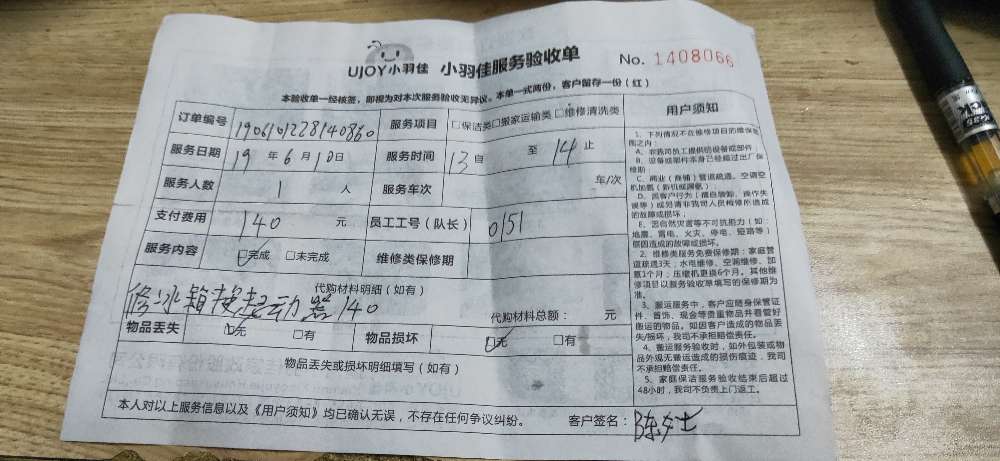 UJOY小羽佳 小羽佳服务验收单 No. 1408066
本验收单一经核签，即视为对本次服务验收无异议。本单一式两份，客户留存一份（红）
订单编号 1906101228140860 服务项目 □保洁类□搬家运输类□维修清洗类
服务日期 19 年 6 月 10 日 服务时间 13 自 至 14 止
服务人数 1 人 服务车次 车/次
支付费用 140 元 员工工号（队长） 0151
服务内容 □完成 □未完成 维修类保修期
代购材料明细（如有）
修冰箱换起动器 140 代购材料总额： 元
物品丢失 □无 □有 物品损坏 □无 □有
物品丢失或损坏明细填写（如有）
本人对以上服务信息以及《用户须知》均已确认无误，不存在任何争议纠纷。 客户签名：陈女士
用户须知
1、下列情况不在维修项目的维保范
围之内：
A、非我司员工提供的设备或部件；
B、设备或部件本身已经超过出厂保
修期
C、商业（商铺）管道疏通、空调空
机加氨（拆机或漏氨）
D、因客户行为（擅自装卸、操作失
误等）或另请非我司人员检修所造成
的故障或损坏；
E、因自然灾害等不可抗拒力（如：
地震、雷电、火灾、停电、短路等）
原因造成的故障或损坏。
2、维修类服务免费保修期：家庭管
道疏通3天，水电维修、空调维修、加
氨1个月；压缩机更换6个月。其他维
修项目以服务验收单填写的保修期为
准。
3、搬运服务中，客户应随身保管证
件、首饰、现金等贵重物品并看管好
搬运的物品。如因客户造成的物品丢
失/损坏，我司不承担赔偿责任。
4、搬运服务验收时，如外包装或物
品外观无搬运造成的损伤痕迹，我司
不承担赔偿责任。
5、家庭保洁服务验收结束后超过
48小时，我司不负责上门返工。